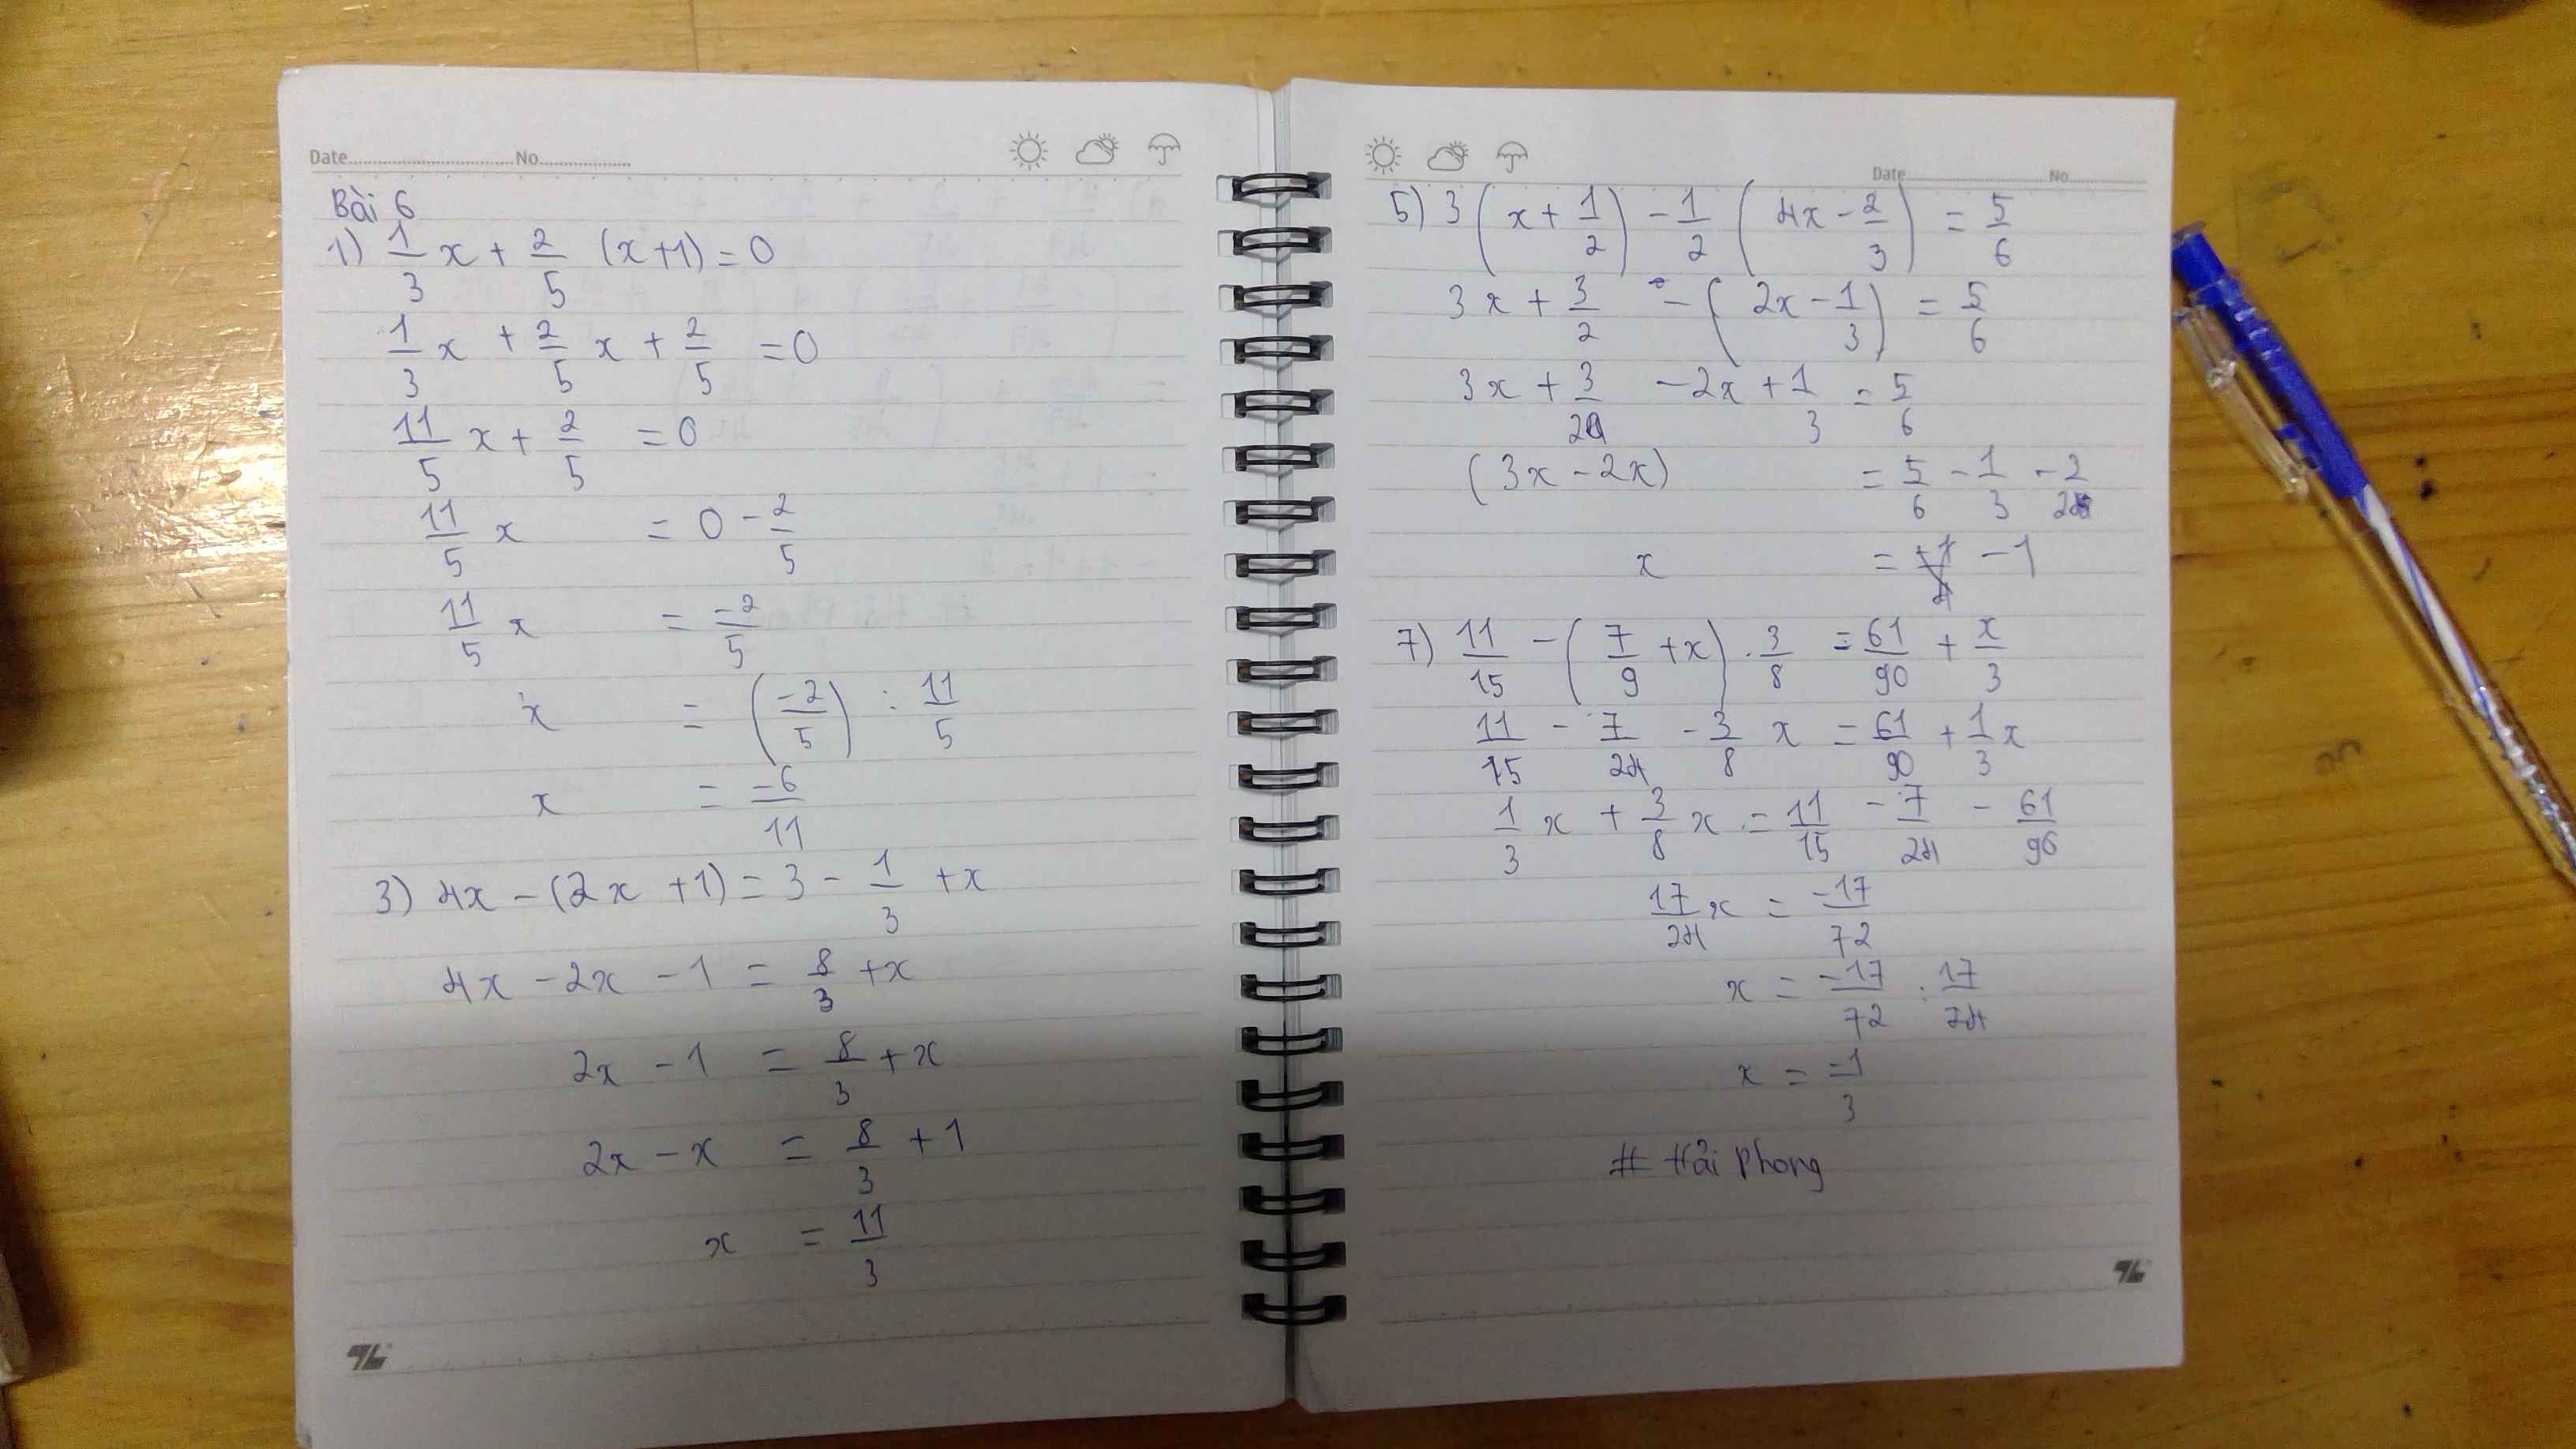 Date............No............
Bài 6
1) 1/3 x + 2/5 (x+1) = 0
1/3 x + 2/5 x + 2/5 = 0
11/5 x + 2/5 = 0
11/5 x = 0 - 2/5
11/5 x = -2/5
x = (-2/5) : 11/5
x = -6/11
3) 4x - (2x + 1) = 3 - 1/3 + x
4x - 2x - 1 = 8/3 + x
2x - 1 = 8/3 + x
2x - x = 8/3 + 1
x = 11/3
Date............No............
5) 3 (x + 1/2) - 1/2 (4x - 2/3) = 5/6
3x + 3/2 - (2x - 1/3) = 5/6
3x + 3/2 - 2x + 1/3 = 5/6
(3x - 2x) = 5/6 - 1/3 - 2/2
x = -1
7) 11/15 - (7/9 + x) . 3/8 = 61/90 + x/3
11/15 - 7/24 - 3/8 x = 61/90 + 1/3 x
1/3 x + 3/8 x = 11/15 - 7/24 - 61/90
17/24 x = -17/72
x = -17/72 : 17/24
x = -1/3
# Hải Phong